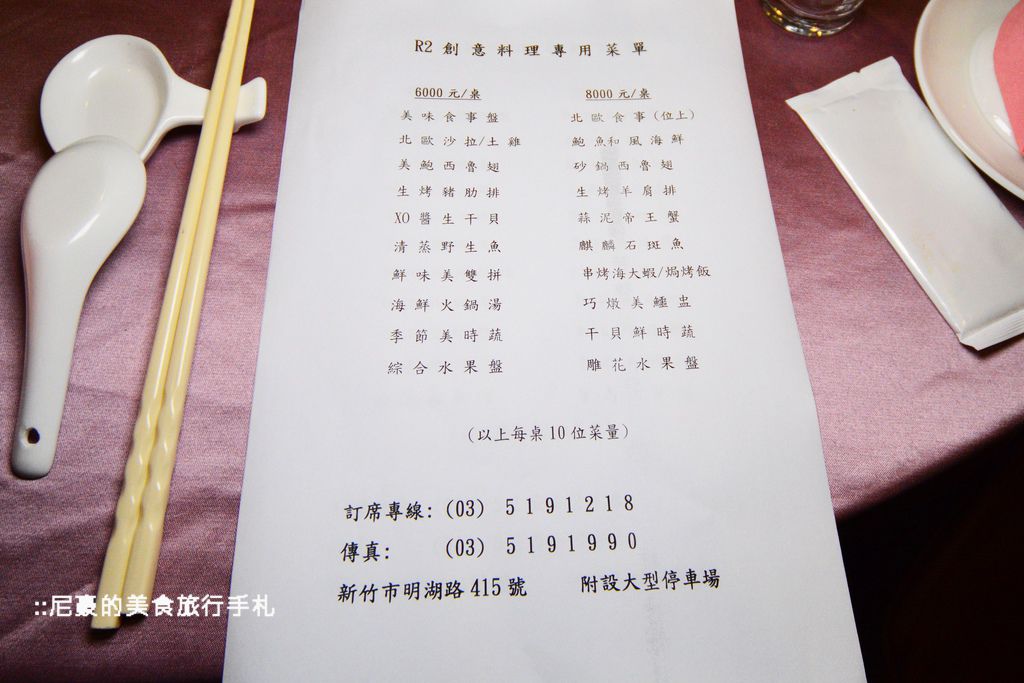 R2 創意料理專用菜單
6000 元/桌
美味食事盤
北歐沙拉/土雞
美鮑西魯翅
生烤豬肋排
XO 醬生干貝
清蒸野生魚
鮮味美雙拼
海鮮火鍋湯
季節美時蔬
綜合水果盤
8000 元/桌
北歐食事(位上)
鮑魚和風海鮮
砂鍋西魯翅
生烤羊肩排
蒜泥帝王蟹
麒麟石斑魚
串烤海大蝦/焗烤飯
巧燉美鱷盅
干貝鮮時蔬
雕花水果盤
(以上每桌 10 位菜量)
訂席專線: (03) 5191218
傳真: (03) 5191990
新竹市明湖路 415 號 附設大型停車場
::尼豪的美食旅行手札